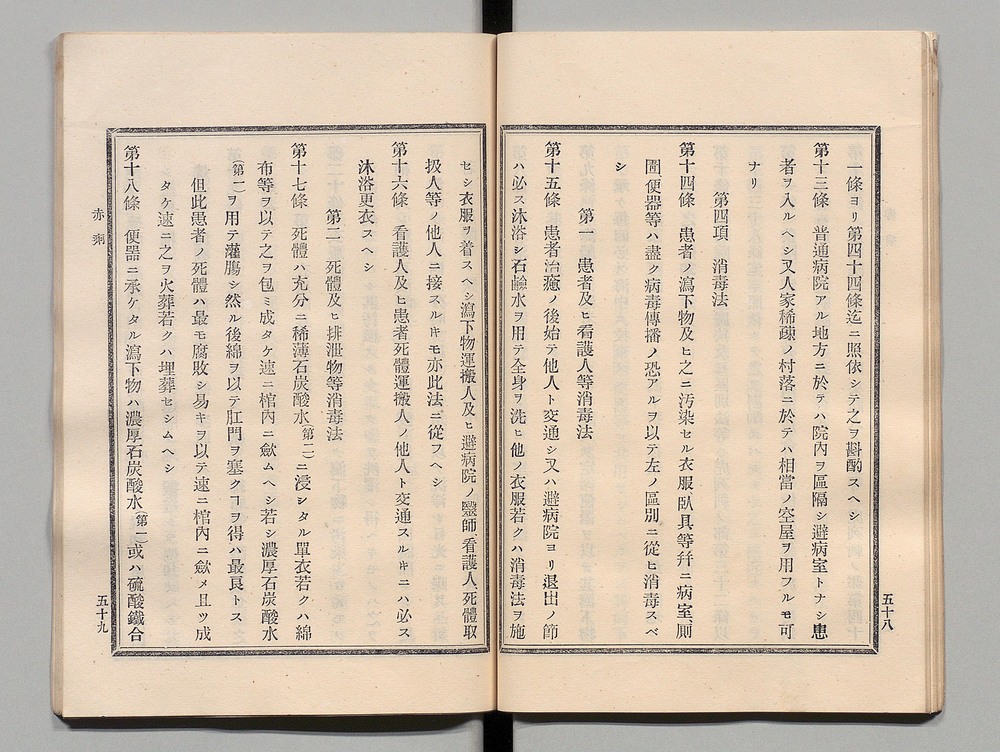 一條ヨリ第四十四條迄ニ照依シテ之ヲ斟酌スヘシ
第十三條　普通病院アル地方ニ於テハ院內ヲ區隔シ避病室トナシ患
者ヲ入ルヘシ又人家稀疎ノ村落ニ於テハ相當ノ空屋ヲ用フルモ可
ナリ
第四項　消毒法
第十四條　患者ノ瀉下物及ヒ之ニ汚染セル衣服、臥具等幷ニ病室、厠
圊、便器等ハ盡ク病毒傳播ノ恐アルヲ以テ左ノ區別ニ從ヒ消毒スベ
シ
第一　患者及ヒ看護人等消毒法
第十五條　患者治癒ノ後始テ他人ト交通シ又ハ避病院ヨリ退出ノ節
ハ必ス沐浴シ石鹼水ヲ用テ全身ヲ洗ヒ他ノ衣服若クハ消毒法ヲ施
五十八
セシ衣服ヲ着スヘシ瀉下物運搬人及ヒ避病院ノ醫師、看護人、死體取
扱人等ノ他人ニ接スルキモ亦此法ニ從フヘシ
第十六條　看護人及ヒ患者死體運搬人ノ他人ト交通スルキニハ必ス
沐浴更衣スヘシ
第二　死體及ヒ排泄物等消毒法
第十七條　死體ハ充分ニ稀薄石炭酸水(第二)ニ浸シタル單衣若クハ綿
布等ヲ以テ之ヲ包ミ成タケ速ニ棺內ニ歛ムヘシ若シ濃厚石炭酸水
(第一)ヲ用テ灌膓シ然ル後綿ヲ以テ肛門ヲ塞クヿヲ得ハ最良トス
但此患者ノ死體ハ最モ腐敗シ易キヲ以テ速ニ棺內ニ歛メ且ツ成
タケ速ニ之ヲ火葬若クハ埋葬セシムヘシ
第十八條　便器ニ承ケタル瀉下物ハ濃厚石炭酸水(第一)或ハ硫酸鐵合
赤痢
五十九